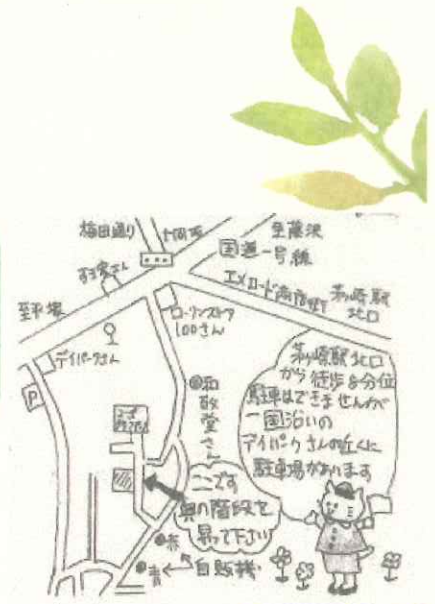 梅田通り
十間坂
至藤沢
国道一号線
すき家さん
エメロード商店街
茅ヶ崎駅
北口
至平塚
ローソンストア
100さん
デイパークさん
P
和敬堂さん
茅ヶ崎駅北口
から徒歩8分位
駐車はできませんが
一国沿いの
デイパークさんの近くに
駐車場があります
ここです
奥の階段を
昇って下さい
赤
青
自販機